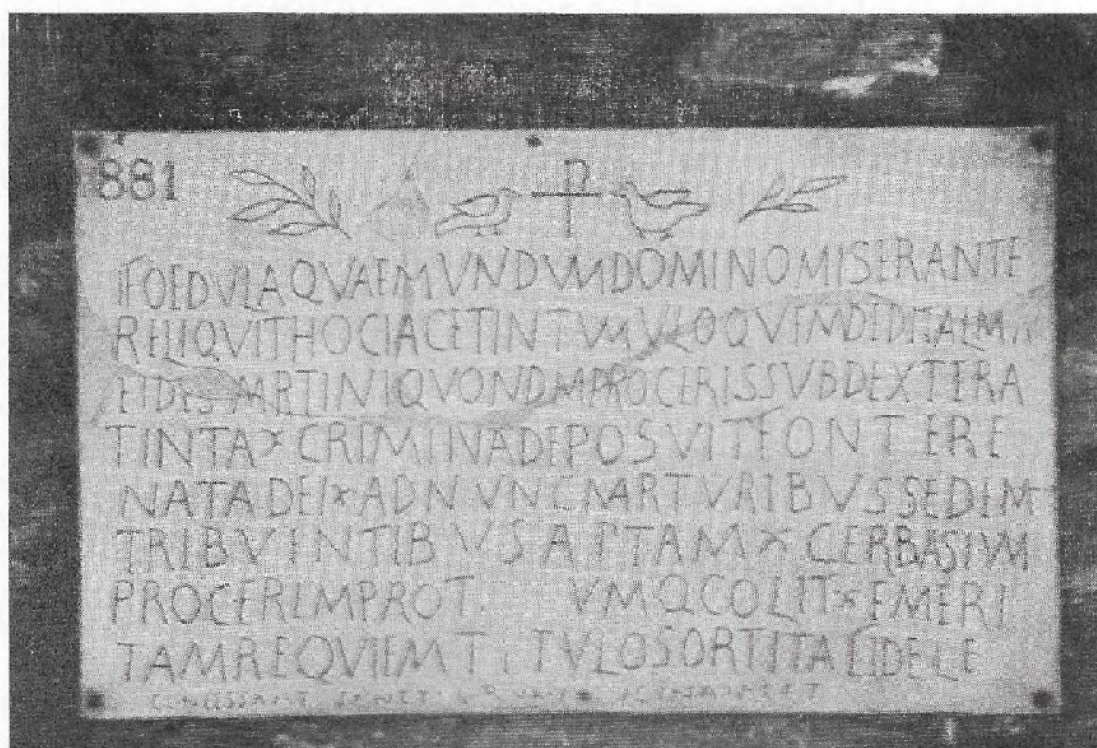 881
FOEDVLAQVAEMVNDVMDOMINOMISERANTE
RELIQVITHOCIACETINTVMVLOQVEMDEDITALMA
FIDESMARTINIQVONDAMPROCERISSVBDEXTERA
TINTA×CRIMINADEPOSVITFONTERE
NATADEI×ADNVNCMARTVRIBVSSEDEM
TRIBVINTIBVSAPTAM×CERBASIVM
PROCEREMPROT. VMQCOLIT×EMERI
TAMREQVIEMTITVLOSORTITAFIDELE